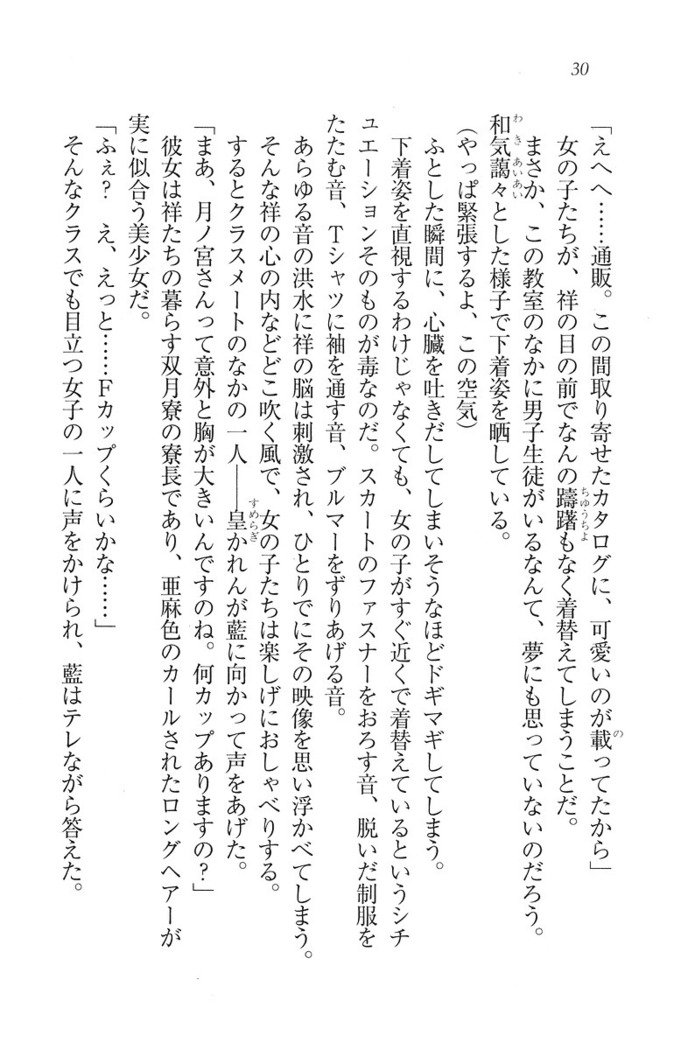 30
「えへへ……通販。この間取り寄せたカタログに、可愛いのが載ってたから」
女の子たちが、祥の目の前でなんの躊躇もなく着替えてしまうことだ。
まさか、この教室のなかに男子生徒がいるなんて、夢にも思っていないのだろう。
和気藹々とした様子で下着姿を晒している。
(やっぱ緊張するよ、この空気)
ふとした瞬間に、心臓を吐きだしてしまいそうなほどドギマギしてしまう。
下着姿を直視するわけじゃなくても、女の子がすぐ近くで着替えているというシチ
ュエーションそのものが毒なのだ。スカートのファスナーをおろす音、脱いだ制服を
たたむ音、Tシャツに袖を通す音、ブルマーをずりあげる音。
あらゆる音の洪水に祥の脳は刺激され、ひとりでにその映像を思い浮かべてしまう。
そんな祥の心の内などどこ吹く風で、女の子たちは楽しげにおしゃべりする。
するとクラスメートのなかの一人――皇かれんが藍に向かって声をあげた。
「まあ、月ノ宮さんって意外と胸が大きいんですのね。何カップありますの?」
彼女は祥たちの暮らす双月寮の寮長であり、亜麻色のカールされたロングヘアーが
実に似合う美少女だ。
「ふぇ? え、えっと……Fカップくらいかな……」
そんなクラスでも目立つ女子の一人に声をかけられ、藍はテレながら答えた。